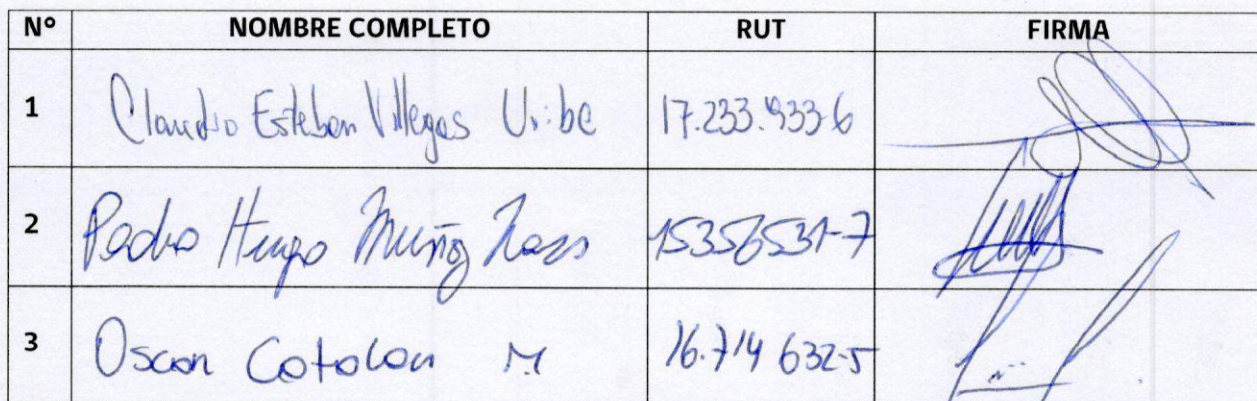 Nº NOMBRE COMPLETO RUT FIRMA
1 Claudio Esteban Villegas Uribe 17.233.933-6
2 Pedro Hugo Muñoz 15356531-7
3 Oscar Catalan M 16.714 632-5